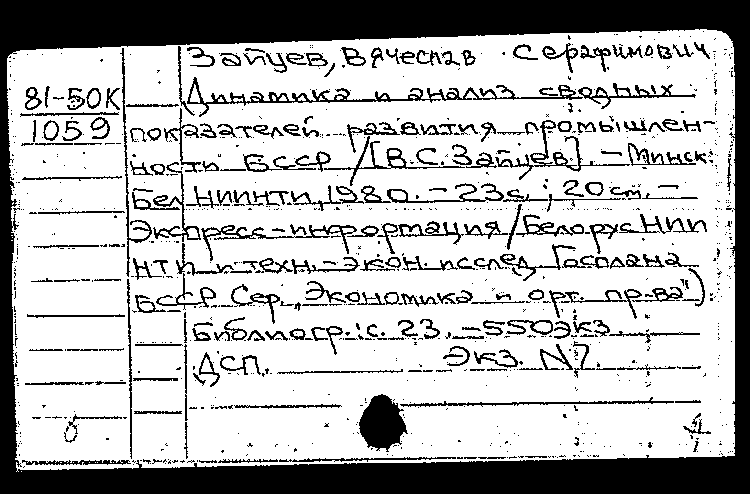 Зайцев, Вячеслав Серафимович
81-50К
1059
Динамика и анализ сводных
показателей развития промышлен-
ности БССР / [В.С. Зайцев]. – Минск:
Бел НИИНТИ, 1980. – 23с.; 20см. –
Экспресс-информация / Белорус НИИ
НТИ и техн.-экон. исслед. Госплана
БССР Сер. „Экономика и орг. пр-ва").
Библиогр.: с. 23. – 550экз.
ДСП. Экз. N7.